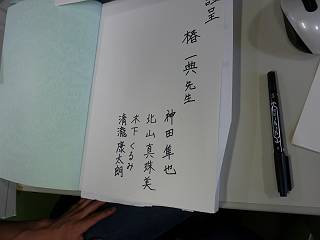 呈
椿 一典 先生
神田 隼也
北山 真珠美
木下 くるみ
清瀧 康太朗